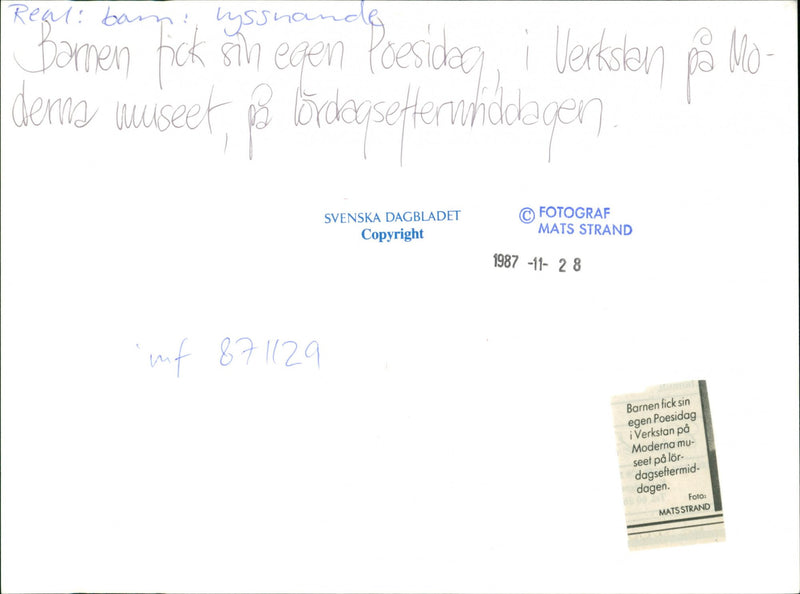 Real: barn: lyssnande
Barnen fick sin egen Poesidag, i Verkstan på Mo-
derna museet, på lördagseftermiddagen.
SVENSKA DAGBLADET
Copyright
© FOTOGRAF
MATS STRAND
1987 -11- 28
inf 871129
Barnen fick sin
egen Poesidag
i Verkstan på
Moderna mu-
seet på lör-
dagseftermid-
dagen.
Foto:
MATS STRAND